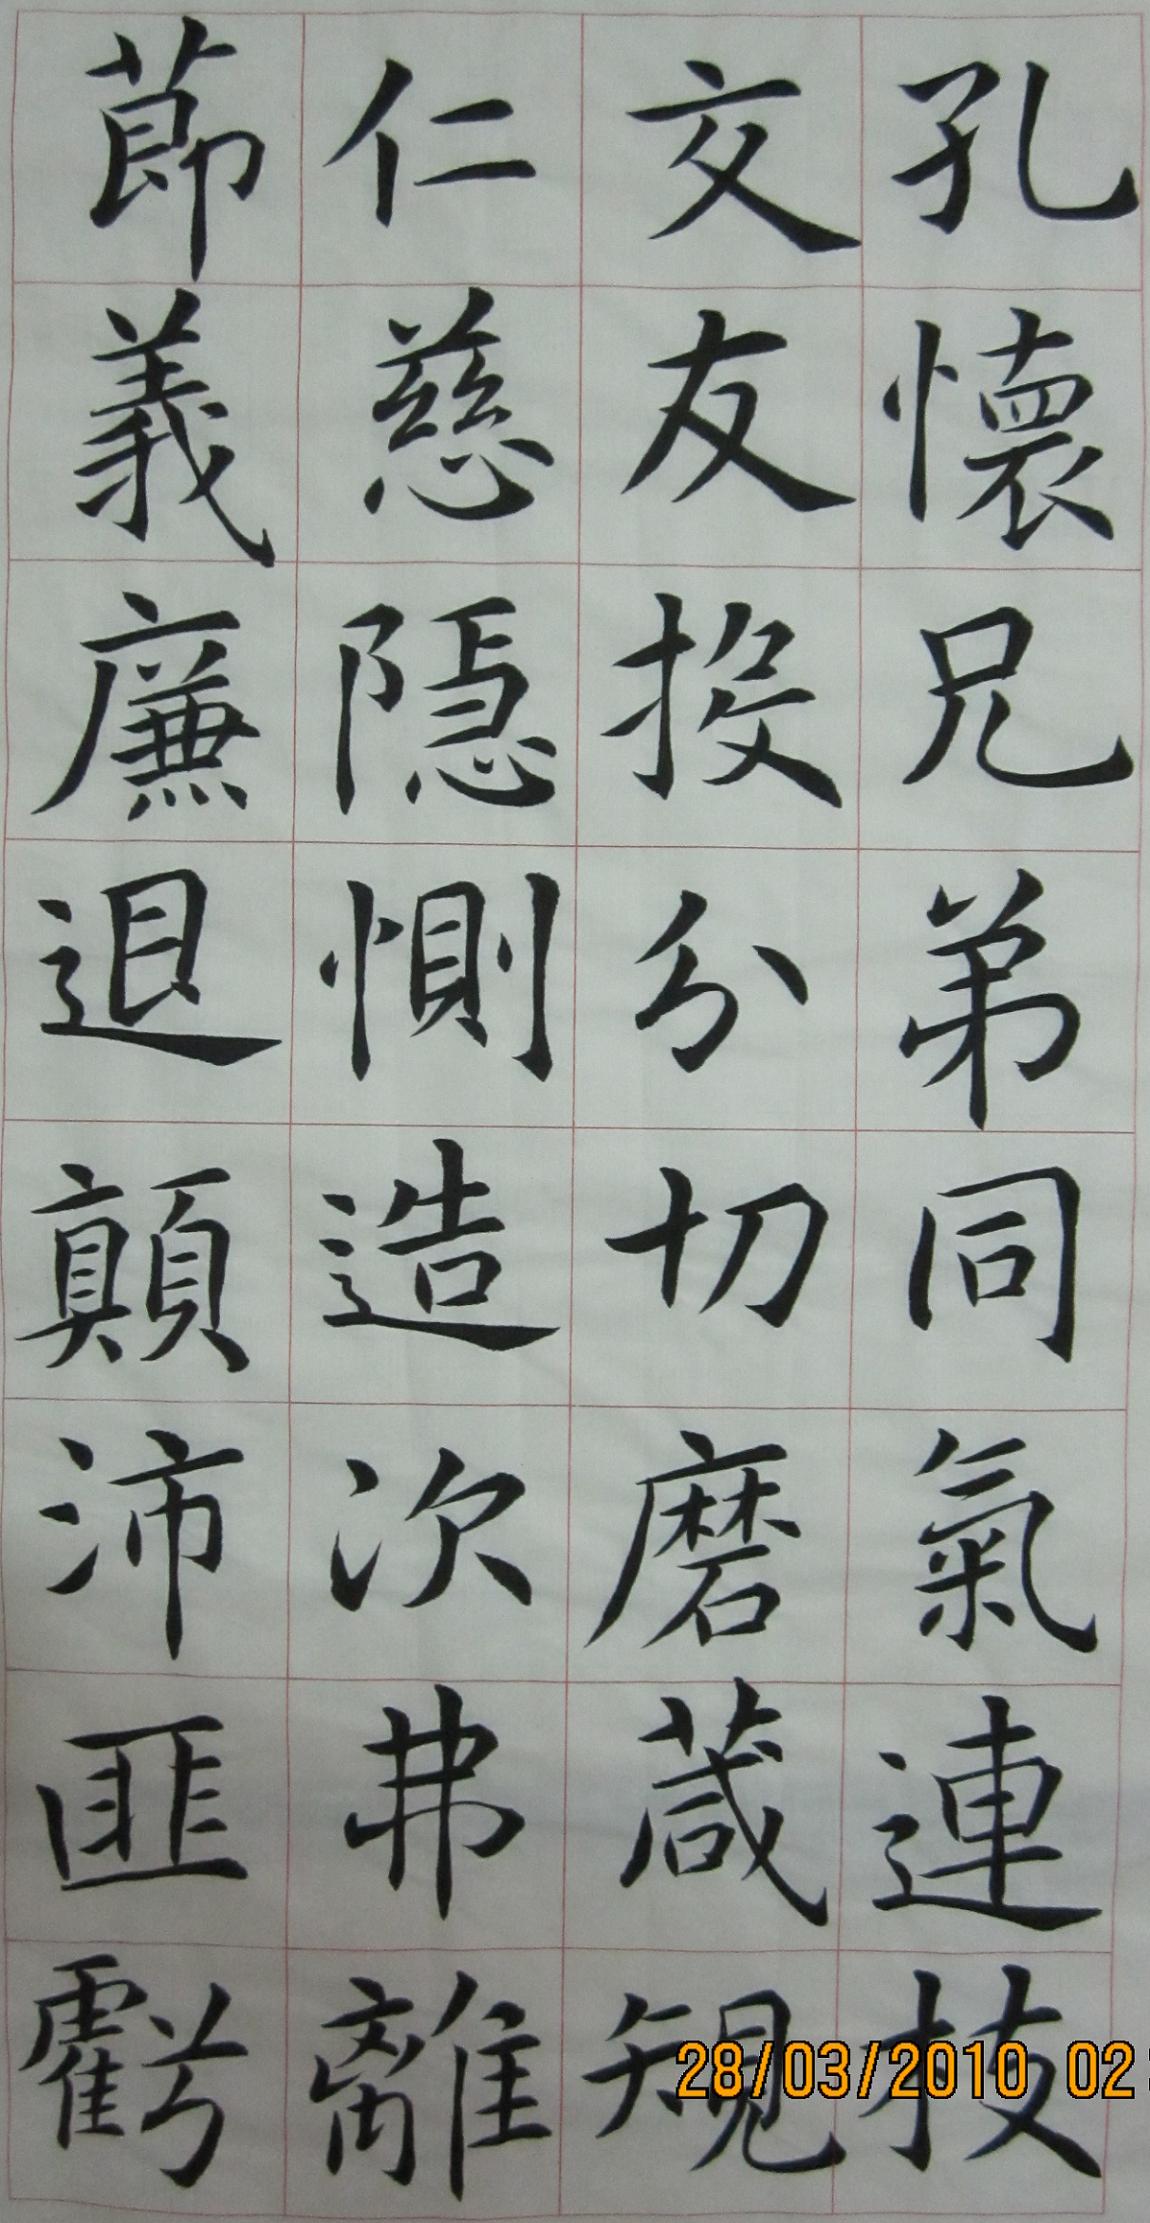 孔懷兄弟同氣連枝
交友投分切磨箴規
仁慈隱惻造次弗離
節義廉退顛沛匪虧
28/03/2010 02